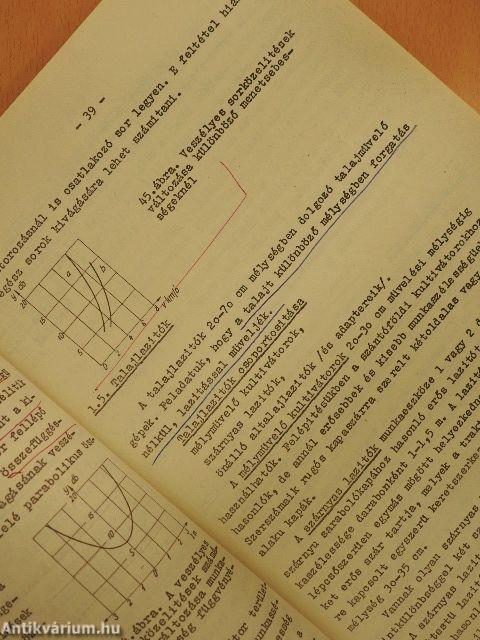 - 39 -
torozásnál is csatlakozó sor legyen. E feltétel hiá
egész sorok kivágására lehet számítani.
45.ábra. Veszélyes sorközelítések
változása különböző menetsebes-
ségeknél
y db
20
15
10
5
a
b
0 2 4 6 8
v km/ó
1.5. Talajlazítók
A talajlazítók 20-70 cm mélységben dolgozó talajművelő
gépek. Feladatuk, hogy a talajt különböző mélységben forgatás
nélkül, lazítással műveljék.
Talajlazítók csoportosítása
mélyművelő kultivátorok,
szárnyas lazítók,
önálló altalajlazítók /és adaptereik/.
A mélyművelő kultivátorok 20-30 cm művelési mélységig
használhatók. Felépítésükben a szántóföldi kultivátorokhoz
hasonlók, de annál erősebbek és kisebb munkaszélességűek
Szerszámaik rugós kapaszárra szerelt kétoldalas vagy
alakú kapák.
A szárnyas lazítók munkaeszköze 1 vagy 2 d
szárnyú sarabolókapához hasonló erős lazítót
kaszélessége darabonként 1-1,5 m. A lazító
lépcsőszerűen egymás mögött helyezkedne
ket erős szár tartja, melyek a trakt
re kapcsolt egyszerű keretszerke
mélység 30-35 cm.
Vannak olyan szárnyas
intkülönbséggel két sz
szárnyas lazít
y db
20
10
5
ábra. A veszélyes
Antikvárium.hu